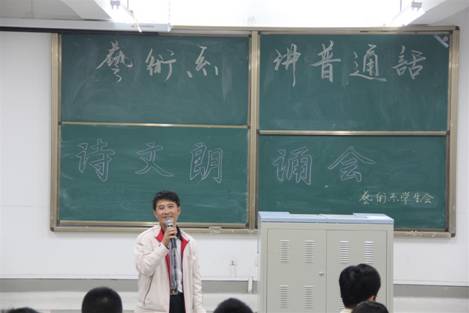 藝術系 讲普通話
诗文朗诵会
藝術系学生会